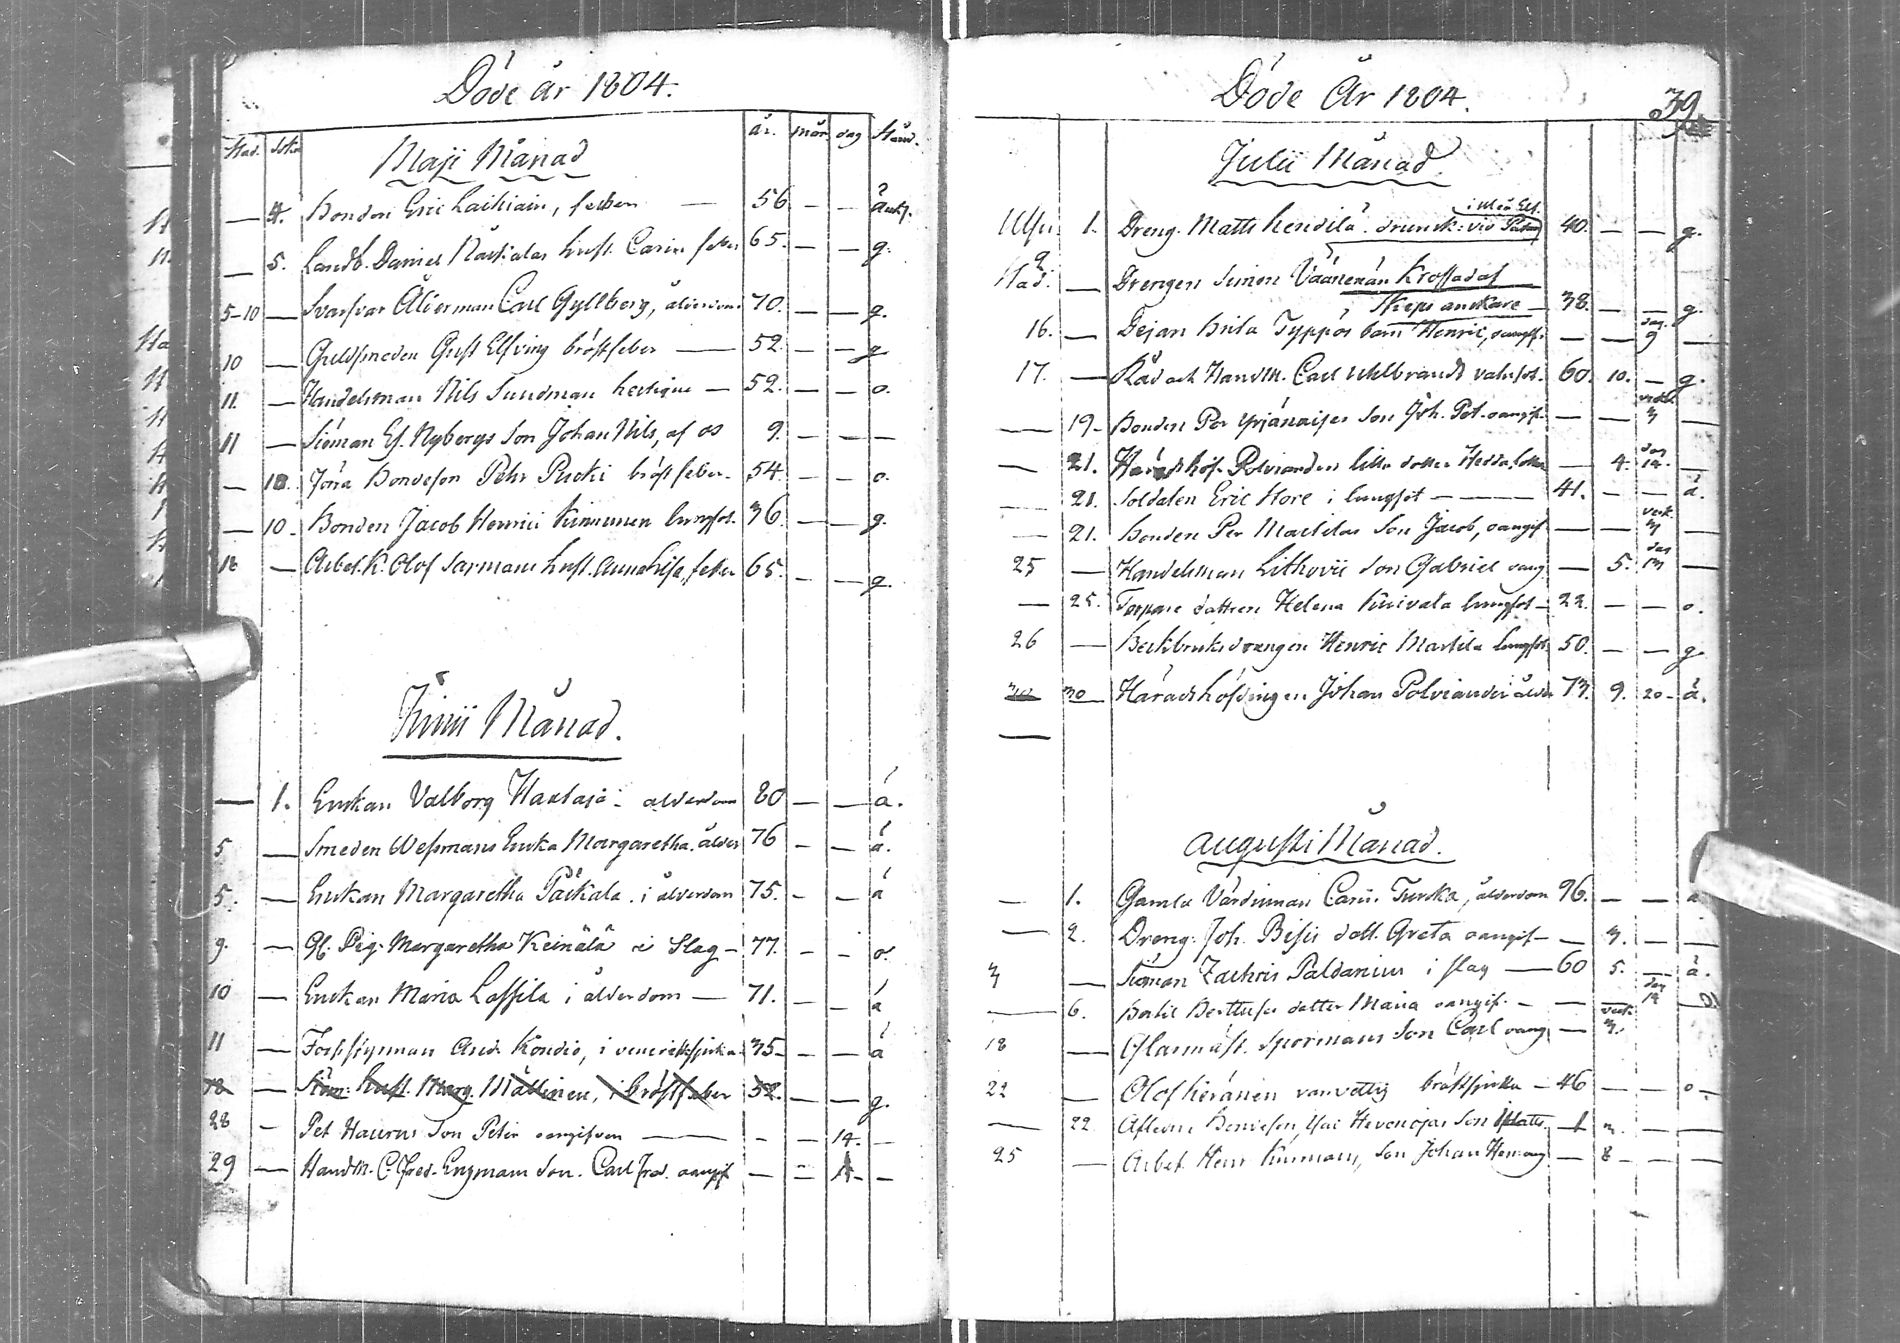 Döde år 1804.
Stad. Sokn år. mån dag Stånd.
Maji Månad
— 4. Bonden Eric Laihiain, feber — 56 — — änkl.
— 5. Landb. Daniel hust. Carin feber 65. — — g.
5-10 — Svarfvar Ålderman Carl Gyllberg, ålderdom 70. — — g.
10 — Guldsmeden Gust Elfving bröstfeber — 52 — — g
11. — Handelsman Nils Sundman hectique — 52. — — o.
11 — Siöman Es. Nybergs Son Johan Nils, af 9. — — —
— 10. Jöns Bondeson Pehr Pucki bröstfeber. 54. — — o.
— 10. Bonden Jacob Henric Kinnunen lungsot. 36 — — g.
16 — Arbet.K. Olof Sarmans hust. Anna Lisa, feber 65. — — g.
Junii Månad.
— 1. Enckan Valborg Hautaja - ålderdom 80 — — ä.
5 — Smeden Wessmans Encka Margaretha. ålder 76 — — ä.
5. — Enckan Margaretha Päckala. i ålderdom 75. — — ä
9. — Gl. Pig. Margaretha Keinälä i Slag — 77. — - o.
10 — Enckan Maria Lassila i ålderdom — 71. — — ä
11 — Forsstyrman And. Kondio, i venerisk sjuka 35 — — ä
12 — hust. Marg. Mällinen, i bröstfeber 52. — — g.
28 - Pet Haurus Son Peter oangifven — - - 14. -
29 — Handm. C. Fred. Engmans Son. Carl Fred. oangif — = 1. -
Döde År 1804. 39
Julii Månad
1. Dreng. Matts Hendilä. drunck: vid 40. — — g.
i Uleå Elf.
Stad. — Drengen Simon Väänenän Krossad af
Skeps anckare — 38. — — g.
16. — Pejan Brita Typpös barn Henric, oangif. — — dag. 9 —
17. — Råd och Handm. Carl Uhlbrandt vatusot. 60. 10. — g.
— 19. Bonden Per Yrjänäises Son Joh. Pet. oangif. — — veck. 3 —
— 21. Häradshöf. Polvianders lilla dotter Hedda Lotta — 4. dag 12. —
— 21. Soldaten Eric Hore i lungsot — 41. — — ä.
— 21. Bonden Per Marttilas Son Jacob, oangif — — veck. 3 —
25 — Handelsman Lithovii Son Gabriel oang — 5. dag 13 —
— 25. Torpare dottren Helena Kuivala lungsot — 22. — — o.
26 — Beckbruksdrängen Henric Martila lungsot 50. — — g.
30 30 — Häradshöfdingen Johan Polviander ålder 73. 9. 20 — ä.
—
Augusti Månad.
— 1. Gamla Värdinnan Carin Turcka, ålderdom 96. — — ä
— 2. Dreng. Joh. Bisis dott. Greta oangif — — 3. — —
3 — Siöman Zachris Paldanius i slag — 60 5. — ä.
— 6. Bertil Berttuses dotter Maria oangif. — — — dag 12 —
18 — Glasmäst. Spormans Son Carl oang — veck. 3.
22 — Olof Keränen vanvettig bröstsjuka — 46 — — o.
— 22. Aflidne Bondeson Hevonojas Son — 1 3. — —
25 — Arbet. Henr Kinnunans, Son Johan Hen oang — 8 — — —